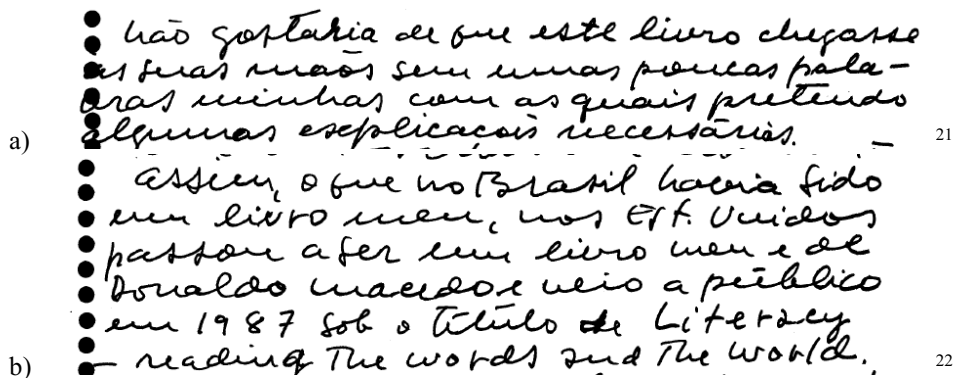 não gostaria de que este livro chegasse
às suas mãos sem umas poucas pala-
vras minhas com as quais pretendo
a) algumas explicações necessárias. 21
Assim, o que no Brasil havia sido
um livro meu, nos Est. Unidos
passou a ser um livro meu e de
Donaldo Macedo e veio a público
em 1987 sob o título de Literacy
b) – reading The words and The world. 22